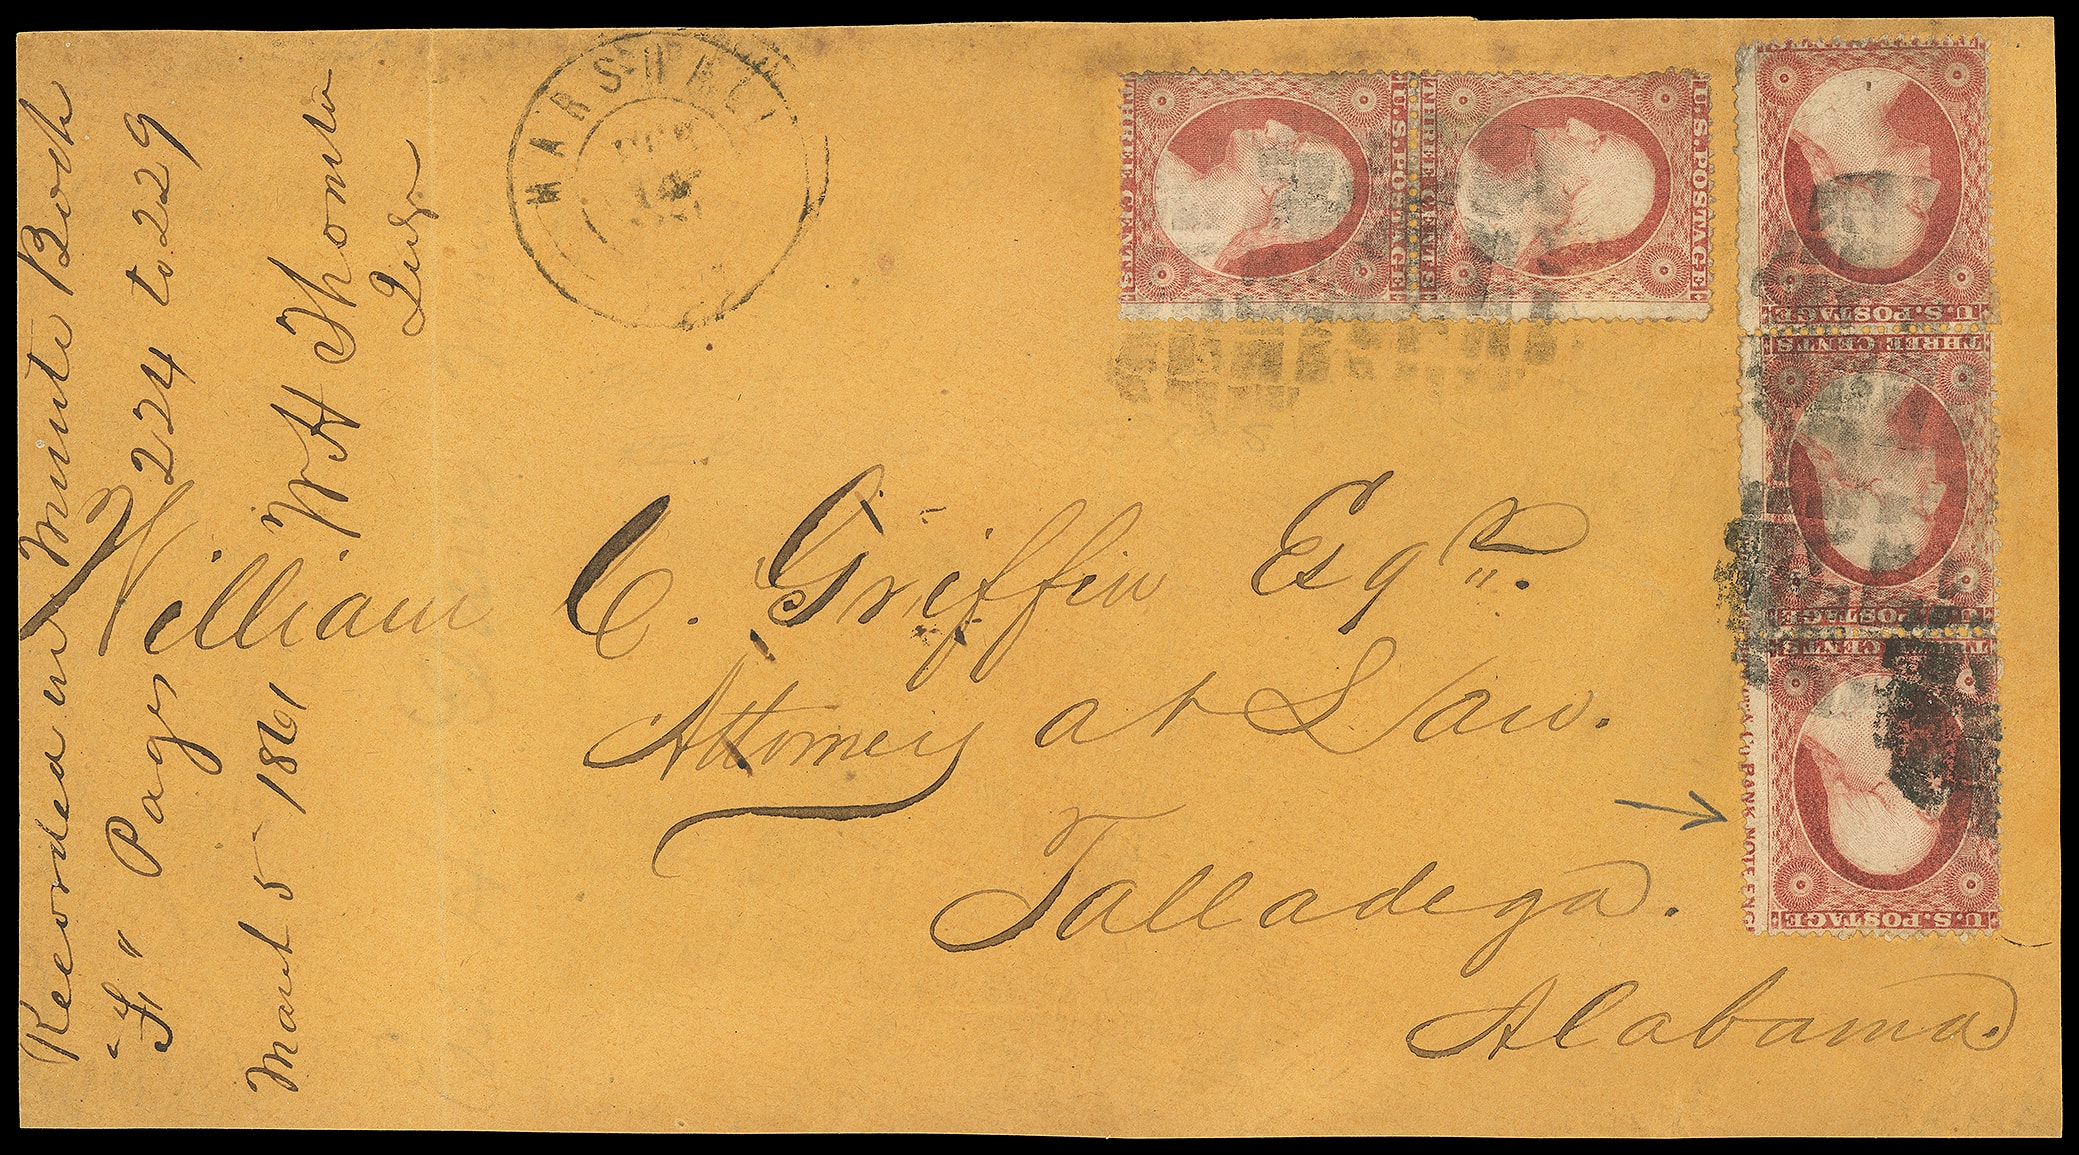 Recorded in Minute Book
"F" Pages 224 to 229
March 5 1861 W H Thomas
Judge
MARSHALL
14
THREE CENTS
U.S. POSTAGE
THREE CENTS
U.S. POSTAGE
CENTS
U.S. POSTAGE
THREE CENTS
U.S. POSTAGE
CENTS
U.S. POSTAGE
& Co. BANK NOTE ENG
William C. Griffin Esqr.
Attorney at Law.
Talladega.
Alabama.